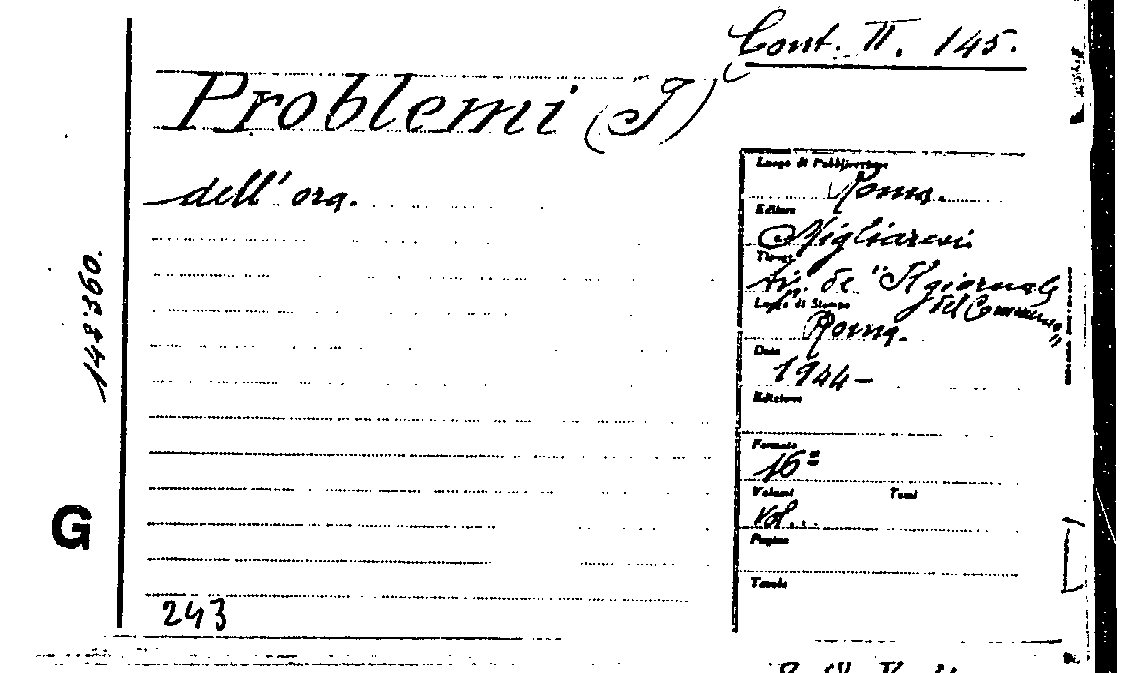 Cont. II. 145.
Problemi (I)
dell' ora.
Luogo di Pubblicazione
Roma.
Editore
Migliaresi
Tip. de "Il giornale
del Commercio"
Luogo di Stampa
Roma.
Data
1944-
Edizione
Formato
16°
Volumi Tomi
Vol...
Pagine
Tavole
148.360.
G
243